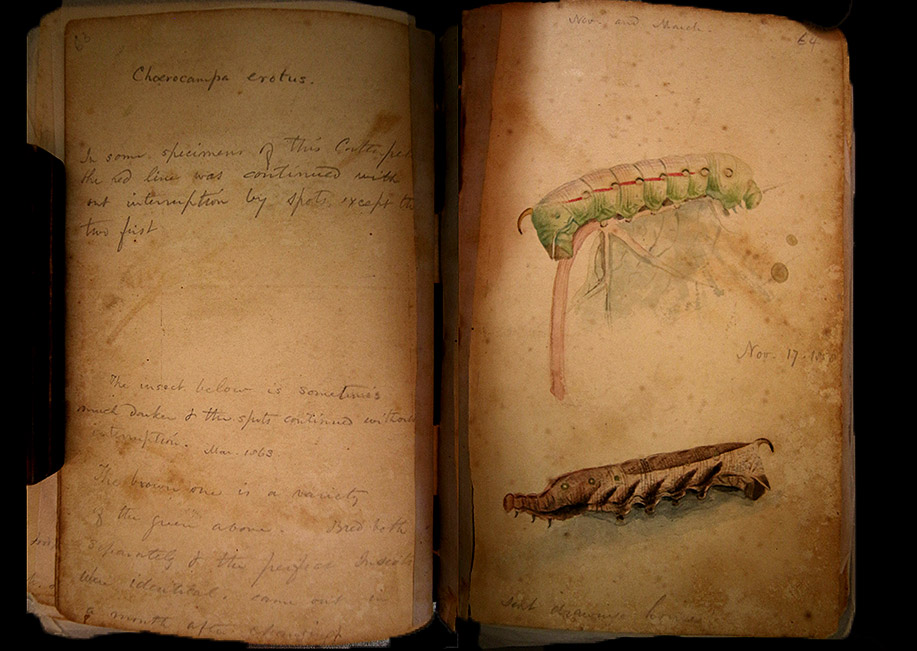 63
Choerocampa erotus.
In some specimens of this Catterpil
the red line was continued with
out interruption by spots except the
two first
The insect below is sometimes
much darker & the spots continued without
interruption.
Mar. 1863
The brown one is a variety
of the green above. Bred both
separately & the perfect Insects
were identical. came out in
a month after
Nov. and March.
64
Nov. 17.